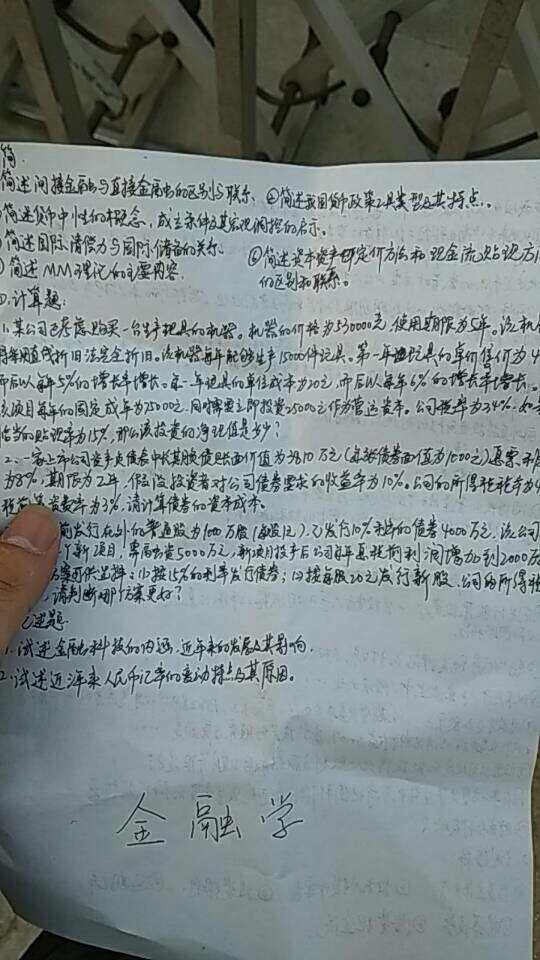 简
简述间接金融与直接金融的区别与联系 ②简述我国货币政策工具类型及其特点.
简述货币中性的概念,成立条件及其宏观调控的启示.
简述国际清偿力与国际储备的关系 ⑥简述资本资产定价方法和现金流贴现方
简述MM理论的主要内容. 的区别和联系。
计算题:
1.某公司已考虑购买一台生产玩具的机器。机器的价格为530000元,使用期限为5年。该机
将采用直线折旧法完全折旧。该机器每年能够生产15000件玩具。第一年玩具的单价售价为4
而后以每年5%的增长率增长。每一年玩具的单位成本为20元,而后以每年6%的增长率增长。
该项目每年的固定成本为75000元.同时需要立即投资25000元作为营运资本。公司税率为34%.如
恰当的贴现率为15%,那么该投资的净现值是多少?
2.一家上市公司资产负债表中长期债账面价值为3810万元(每张债券面值为1000元)息票利
为8%,期限为2年,假设投资者对公司债券要求的收益率为10%。公司的所得税税率为4
费率为3%,请计算债券的资本成本。
前发行在外的普通股为1000万股(每股1元).已发行10%利率的债券4000万元,该公司
个新项目,需融资5000万元,新项目投产后公司每年息税前利润增加到2000万
方案可供选择:(1)按15%的利率发行债券;(2)按每股20元发行新股.公司的所得税
.请判断哪个方案更好?
论述题
1.试述金融科技的内涵,近年来的发展及其影响.
2.试述近年来人民币汇率的变动特点与其原因。
金融学